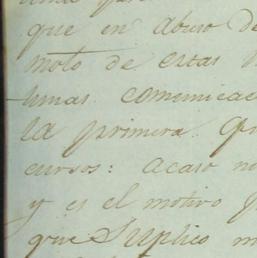 que en abuso de
moto de estas
timas comunicac
la primera qu
cursos: acaso no
y es el motivo p
que Suplico m